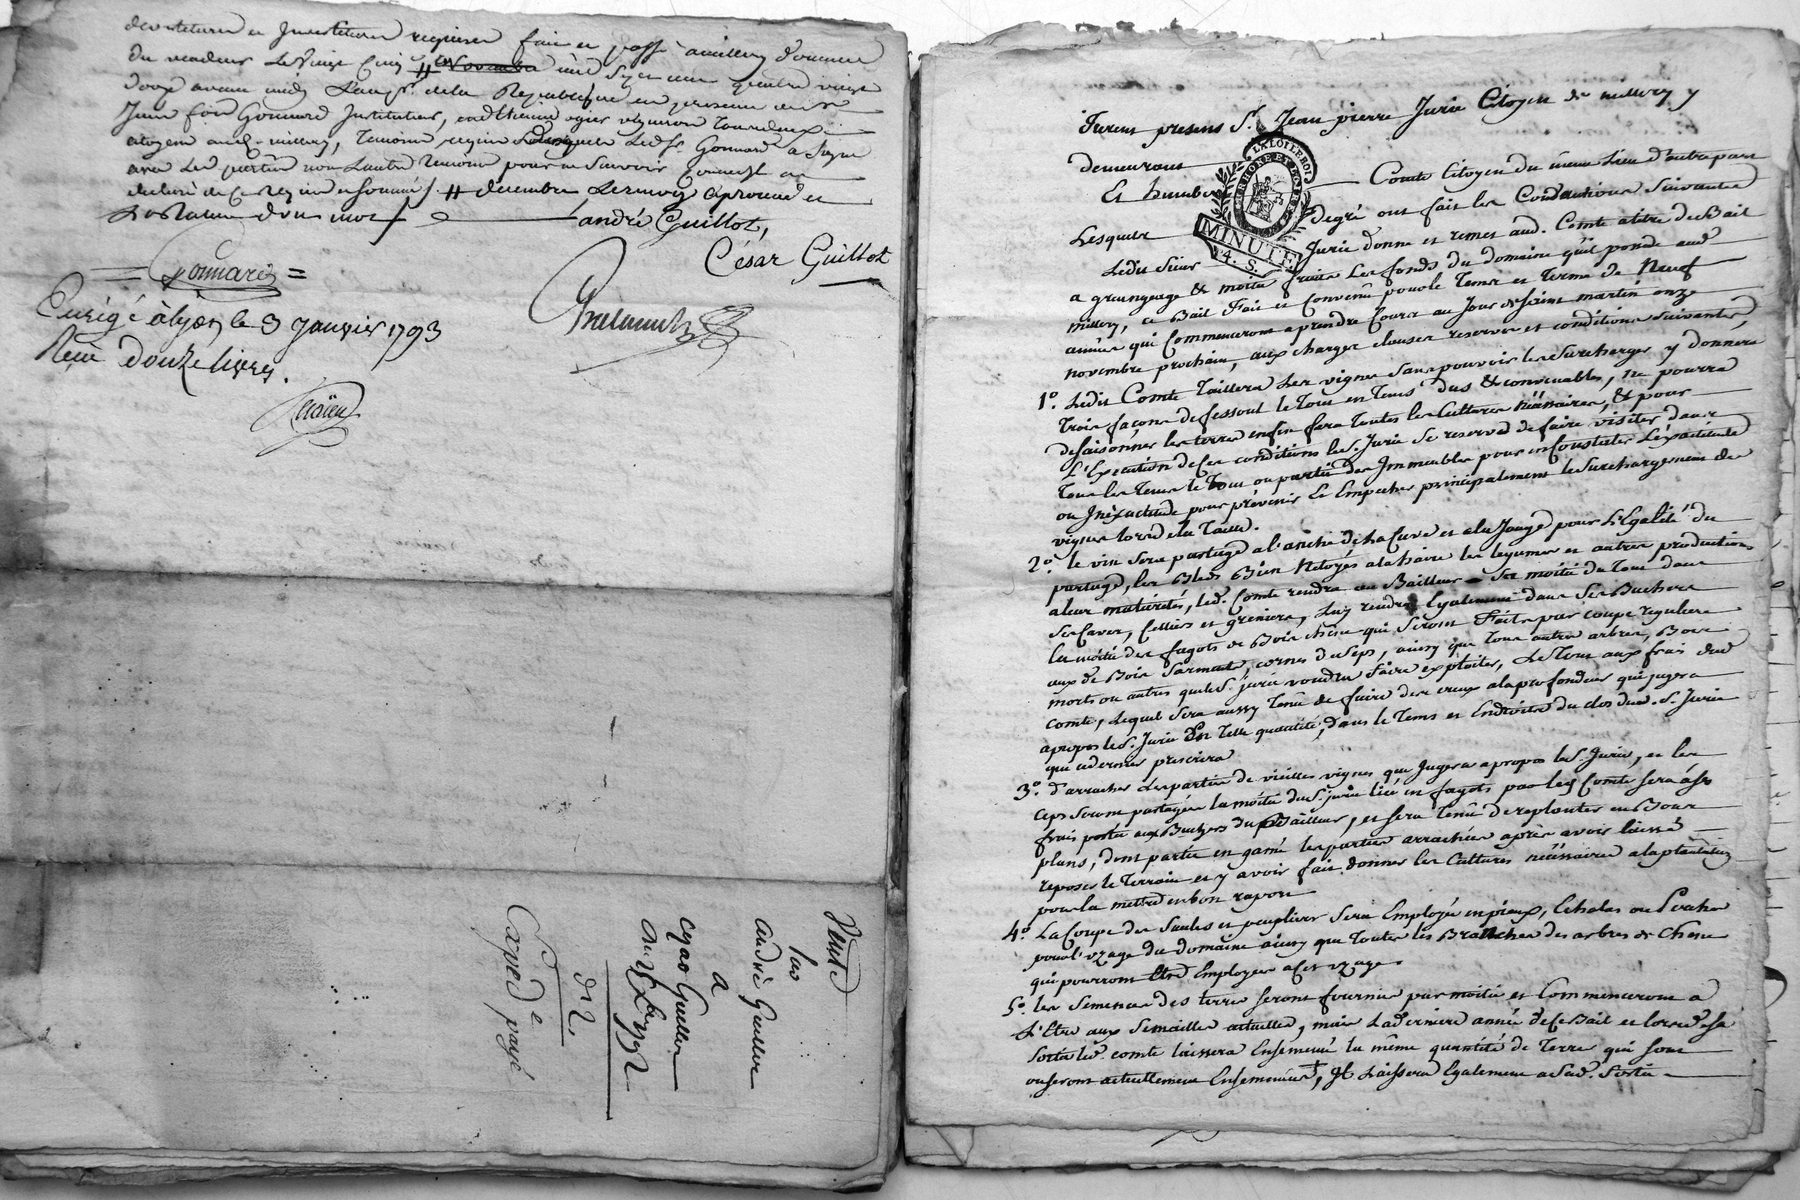 devêtture et Investiture requises fait et passé audit millery domicile
du vendeur Le Vingt Cinq # Novembre mil Sept cent quatre vingt
douze avant midi L'an 1er. de la Republique en presence de Sr
Jean Gonnard Instituteur, et Ethienne
citoyens aud. millery, Temoins requis Lesquels Led. Sr. Gonnard a Signé
avec Les parties non L'autre Temoin pour ne Savoir comme il a
declaré de ce Requis et Sommé /. # decembre Le renvoy aprouvé et
La rature d'un mot /
andré Guillot,
César Guillot
= Gonnard =
Enrigé à lyon le 3 Janvier 1793
Reçu Douze livres.
Vente
par
andré Guillot
a
César Guillot
du 25 Xbre 1792
Exped payé
Furent presens Sr. Jean pierre Jurie Citoyen de millery y
LA LOI LE ROI
RHONE ET LOIRE
MINUTE
4. S.
demeurant
Et humbert Comte Citoyen du même Lieu d'autre part
Lesquels degré ont fait les Conventions Suivantes
Ledit Sieur Jurie donne et remet aud. Comte a titre de Bail
a grangeage & moitié fruits Les fonds du domaine qu'il possede aud
millery, ce Bail Fait et Convenû pour le Tems et Terme de Neuf
années qui Commenceront a prendre Cours au Jour de Saint martin onze
novembre prochain, aux charges clauses reserves et conditions Suivantes,
1º. Ledit Comte Taillera Les vignes Sans pouvoir les Surcharger y donnera
Trois façons de fessout le Tout en Tems dus & convenables, ne pourra
desaisonner les terres enfin fera Toutes les Cultures néssaires, & pour
L'Execution de Ces conditions le S. Jurie Se reserve de faire visiter dans
Tous les Tems le Tout ou partie des Immeubles pour en Constater L'éxactitude
ou Inéxactitude pour prévenir & Empecher principalement le Surchargement des
vignes lors de la Taille.
2º. le vin Sera partagé a l'anche de La Cuve et a la Jauge pour L'Egalité du
partage, les Bleds Bien Nétoyés a la haire les legumes et autres productions
a leur maturités, led. Comte rendra au Bailleur Sa moitié du Tout dans
Ses Caves, Celliers et greniers, Luy rendra Egalement dans Ses Buchers
La moitié des fagots de Bois chêne qui Seront Faits par coupe reguliere
aux de Bois Sarment, cornes du Seps, ainsy que Tous autre arbres, Bois
morts ou autres que le S. jurie voudra Faire exploiter, Le Tout aux frais dud
Comte, Lequel Sera aussy Tenû de faire des creux a la profondeur qui jugera
apropos le S. Jurie En Telle quantité, dans le Tems et Endroits du clos dud. S. Jurie
que ce dernier prescrira
3º. d'arracher Les parties de vieilles vignes que Jugera apropos le S. Jurie, et les
ceps Seront partagés la moitié du S. jurie lié en fagots par led Comte Sera à Ses
frais portée aux Buchers du Bailleur, et Sera Tenû de replanter en Bons
plans, dont partie en gamé les parties arrachées après avoir laissé
reposer le Terrain et y avoir fait donner les Cultures néssaires a la plantation
pour la mettre en bon raport
4º. La Coupe des Saules et peupliers Sera Employée en pieux, Echalas ou
pour l'uzage du domaine ainsy que Toutes les Branches des arbres de Chene
qui pourront Etre Employées a cet uzage.
5º. les Semences des terres Seront fournies par moitié et Commenceront a
L'Etre aux Semailles actuelles, mais La derniere année de Ce Bail et lors de Sa
Sortie led. comte laissera Ensemencé la même quantité de Terres qui Sont
ou Seront actuellement Ensemencées, Il Laissera Egalement a Sad. Sortie